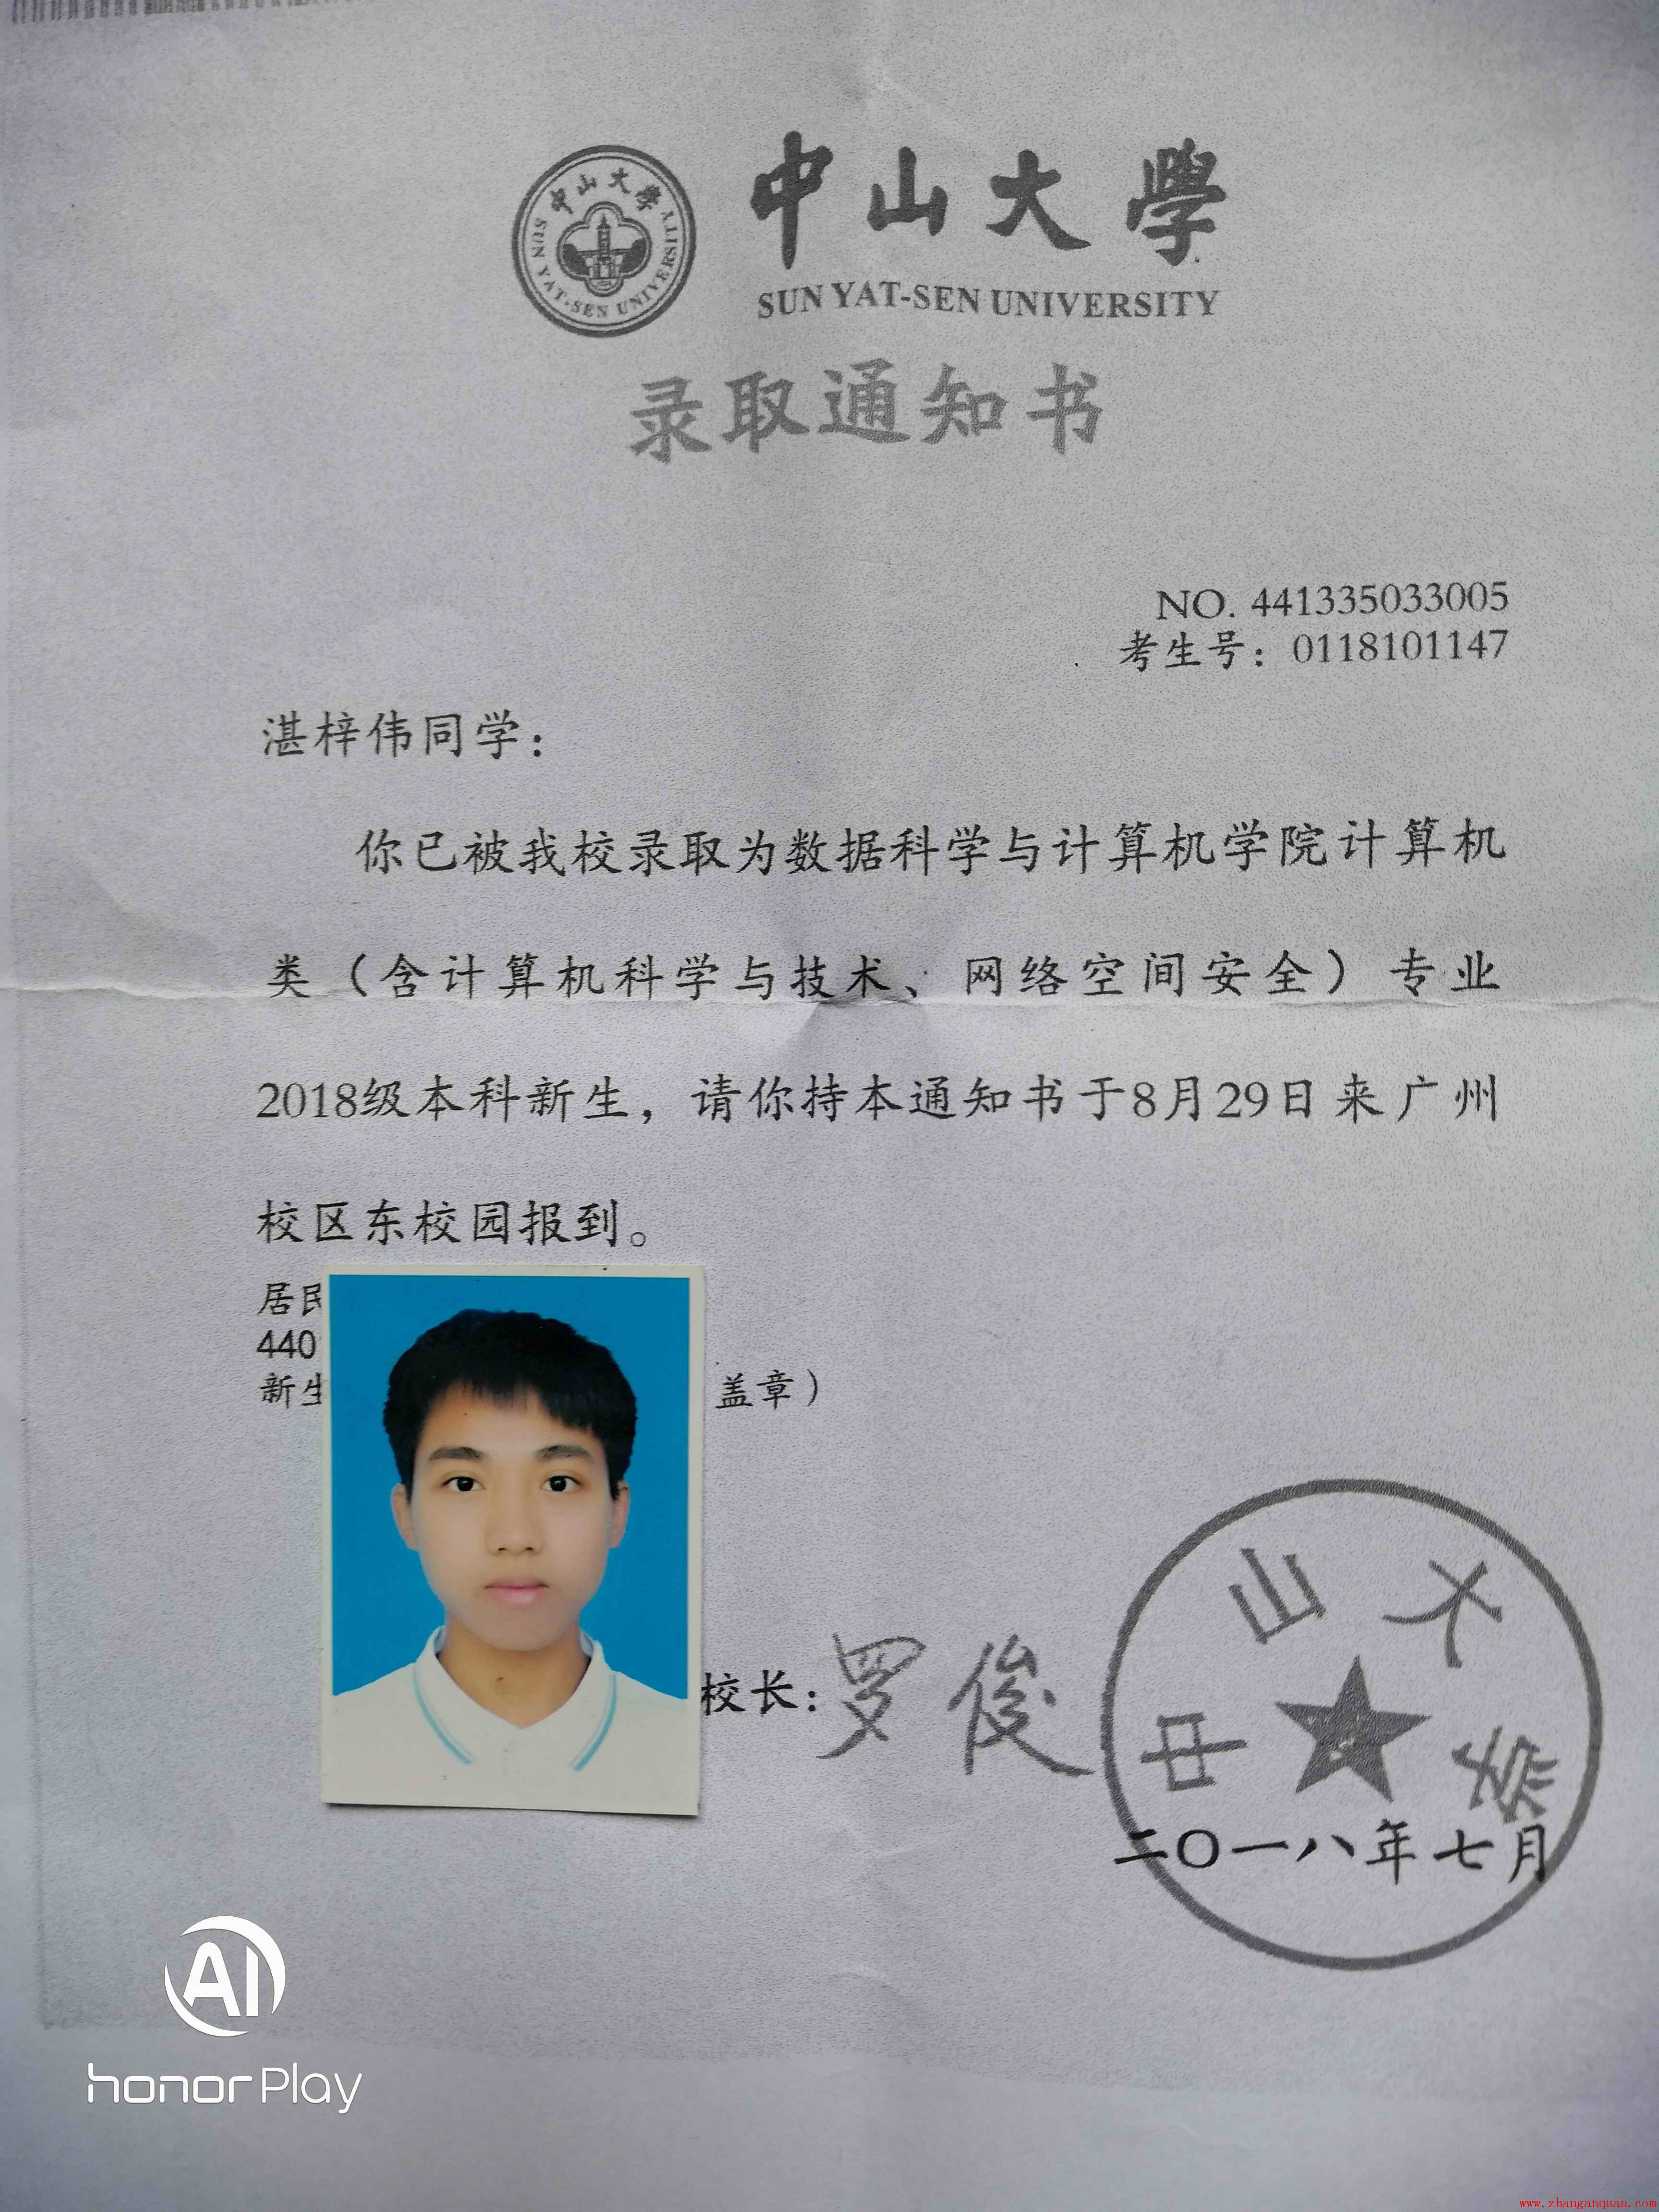 中山大學
SUN YAT-SEN UNIVERSITY
中山大學
SUN YAT-SEN UNIVERSITY
录取通知书
NO. 441335033005
考生号：0118101147
湛梓伟同学：
你已被我校录取为数据科学与计算机学院计算机
类（含计算机科学与技术、网络空间安全）专业
2018级本科新生，请你持本通知书于8月29日来广州
校区东校园报到。
居民
440
新生 盖章）
校长：罗俊
中山大学
二〇一八年七月
AI
honor Play
www.zhanganquan.com